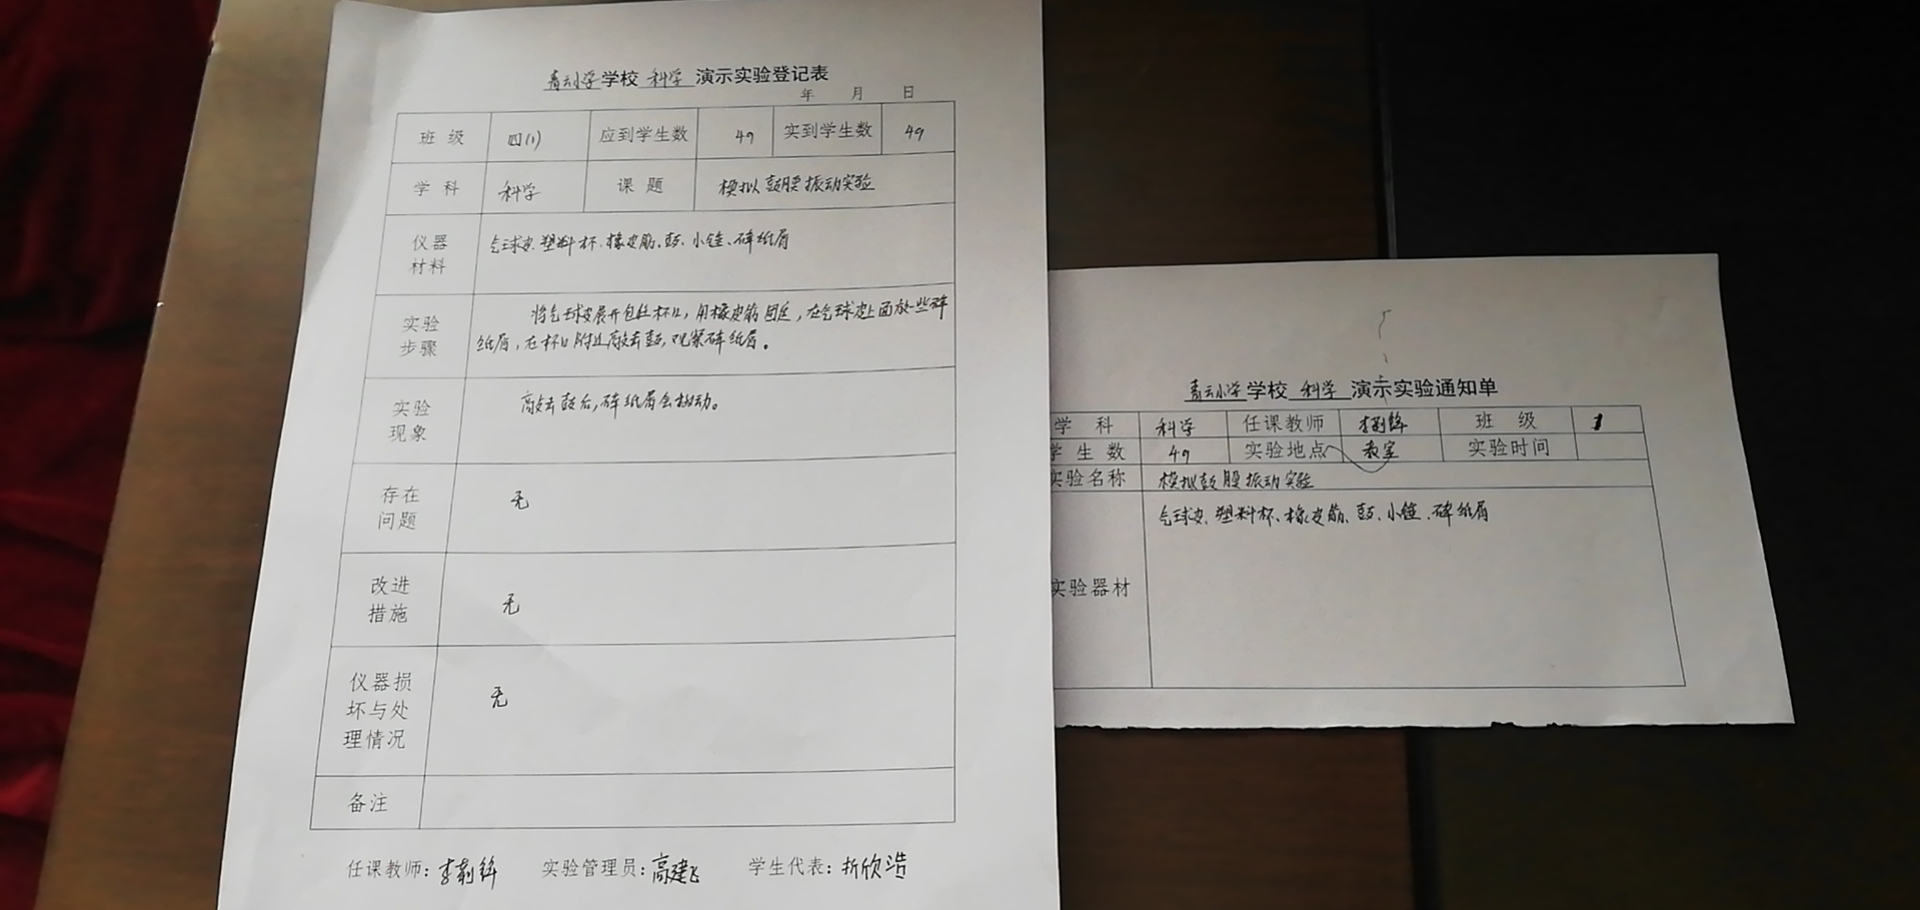 青云小学学校 科学 演示实验登记表
年 月 日
班 级 四(1) 应到学生数 49 实到学生数 49
学 科 科学 课 题 模拟鼓膜振动实验
仪器材料 气球皮、塑料杯、橡皮筋、鼓、小锤、碎纸屑
实验步骤 将气球皮展开包住杯口,用橡皮筋固定,在气球皮上面放一些碎
纸屑,在杯口附近敲击鼓,观察碎纸屑。
实验现象 敲击鼓后,碎纸屑会振动。
存在问题 无
改进措施 无
仪器损坏与处理情况 无
备注
任课教师: 实验管理员:高建飞 学生代表:折欣浩
青云小学学校 科学 演示实验通知单
学 科 科学 任课教师 班 级 1
学生数 49 实验地点 教室 实验时间
实验名称 模拟鼓膜振动实验
实验器材 气球皮、塑料杯、橡皮筋、鼓、小锤、碎纸屑